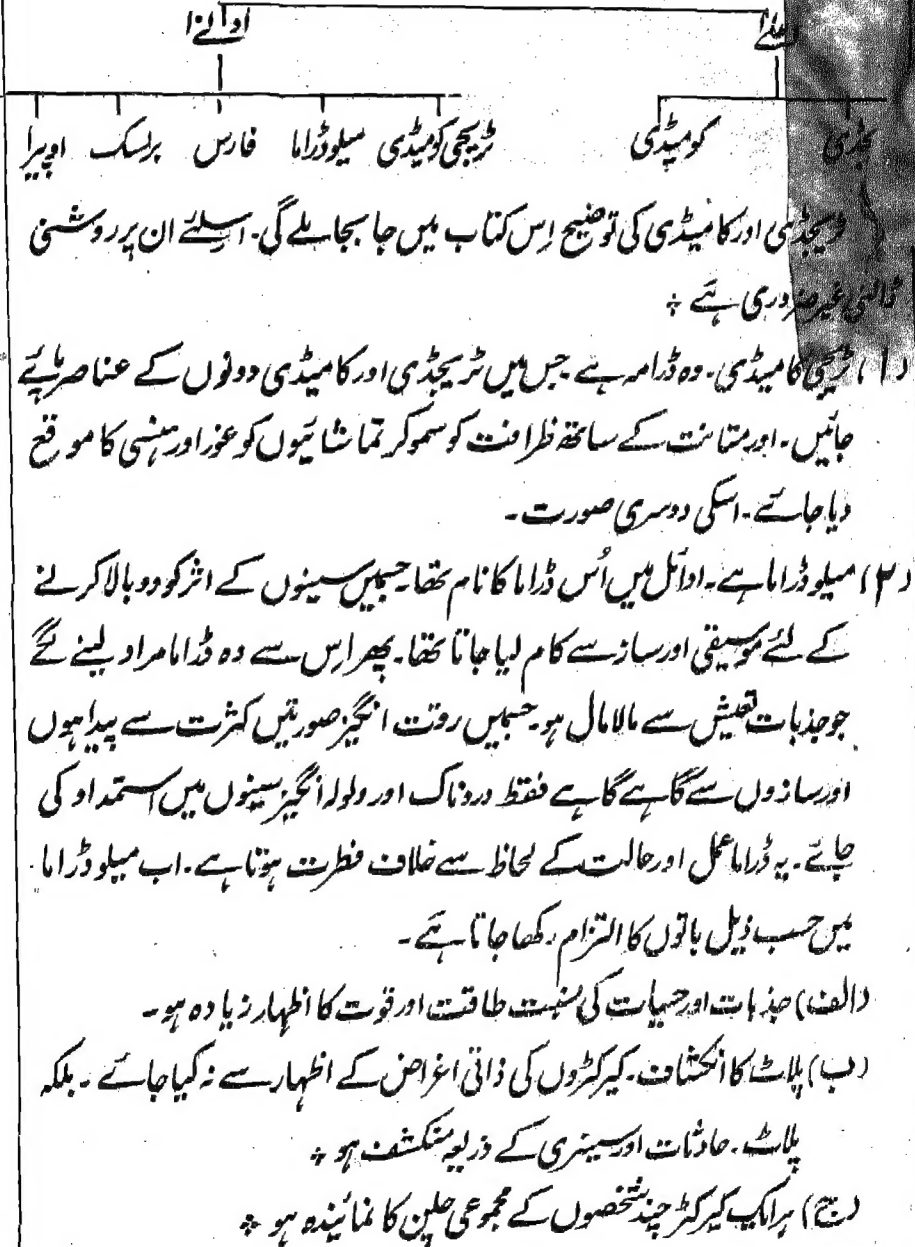 اعلےٰ ادانےٰ
ٹریجڈی کومیڈی ٹریجی کومیڈی میلوڈراما فارس برلسک اوپیرا
ٹریجڈی اور کامیڈی کی توضیح اِس کتاب میں جا بجا ملے گی۔ اسلئے ان پر روشنی
ڈالنی غیر ضروری ہے ÷
(۱) ٹریجی کامیڈی۔ وہ ڈرامہ ہے جس میں ٹریجڈی اور کامیڈی دونوں کے عناصر پائے
جائیں۔ اور متانت کے ساتھ ظرافت کو سمو کر تماشائیوں کو غور اور ہنسی کا موقع
دیا جائے۔ اسکی دوسری صورت۔
(۲) میلو ڈراما ہے۔ اوائل میں اُس ڈراما کا نام تھا۔ جسمیں سینوں کے اثر کو دوبالا کرنے
کے لئے موسیقی اور ساز سے کام لیا جاتا تھا۔ پھر اِس سے وہ ڈراما مراد لینے لگے
جو جذبات تعیش سے مالامال ہو۔ جسمیں رقت انگیز صورتیں کثرت سے پیدا ہوں
اور سازوں سے گاہے گاہے فقط دردناک اور ولولہ انگیز سینوں میں استمداد کی
جائے۔ یہ ڈراما عمل اور حالت کے لحاظ سے خلاف فطرت ہوتا ہے۔ اب میلو ڈراما
میں حسب ذیل باتوں کا التزام رکھا جاتا ہے۔
(الف) جذبات اور حسیات کی نسبت طاقت اور قوت کا اظہار زیادہ ہو۔
(ب) پلاٹ کا انکشاف۔ کیرکٹروں کی ذاتی اغراض کے اظہار سے نہ کیا جائے۔ بلکہ
پلاٹ۔ حادثات اور سینری کے ذریعہ منکشف ہو ÷
(ج) ہر ایک کیرکٹر چند شخصوں کے مجموعی چلن کا نمائیندہ ہو ÷